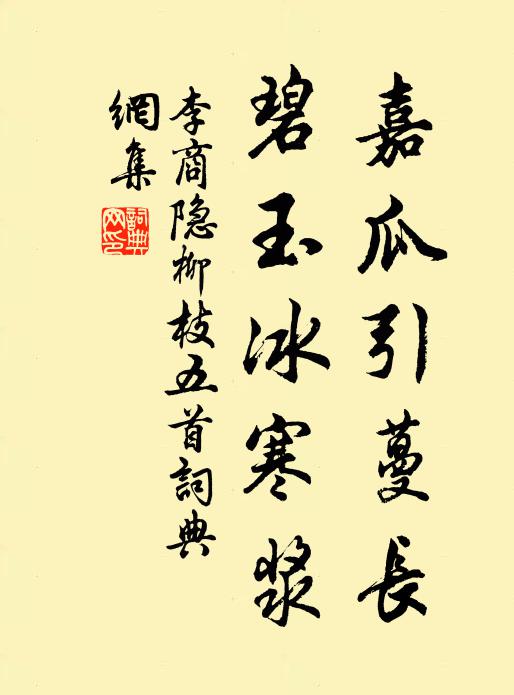 嘉瓜引蔓長
碧玉冰寒漿
李商隐柳枝五首詞典
網集
詞典網印